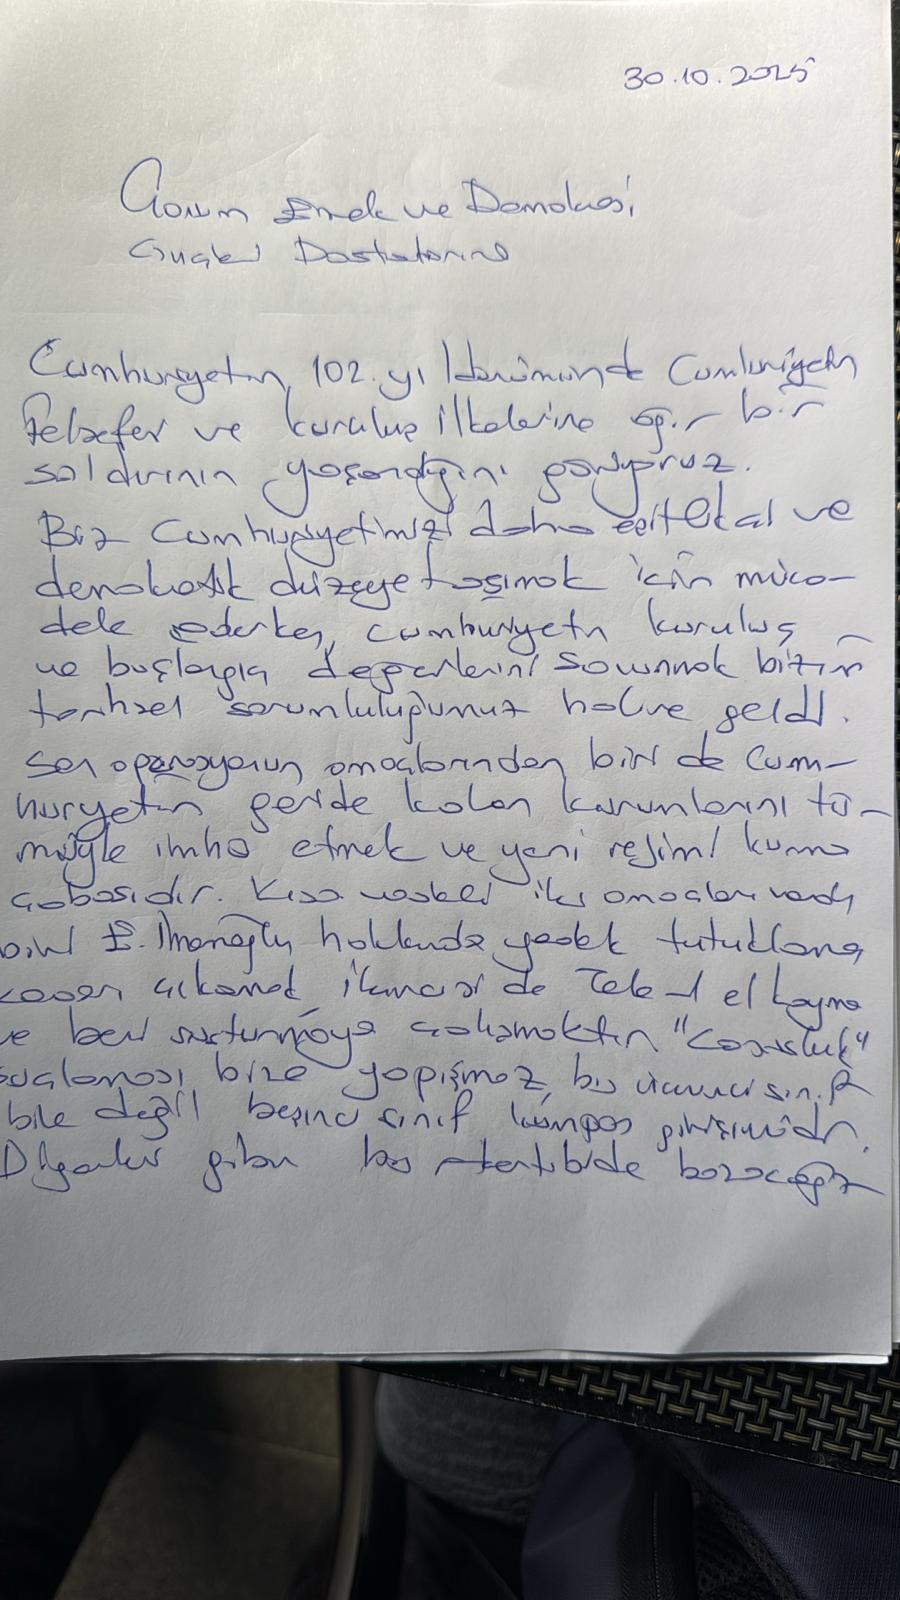 30.10.2025
Emek ve Demokrasi
Güçleri Dostlarına
Cumhuriyetin 102. yıldönümünde Cumhuriyetin
felsefesi ve kuruluş ilkelerine ağır bir
saldırının yaşandığını görüyoruz.
Biz Cumhuriyetimizi daha eşitlikçi ve
demokratik düzeye taşımak için müca-
dele ederken, cumhuriyetin kuruluş
ve başlangıç değerlerini savunmak bizim
tarihsel sorumluluğumuz haline geldi.
Son operasyonun amaçlarından biri de Cum-
huriyetin geride kalan kurumlarını tü-
müyle imha etmek ve yeni rejimi kurma
çabasıdır. Kısa vadeli iki amaçları vardı
biri E. İmamoğlu hakkında yedek tutuklama
kararı çıkarmak, ikincisi de Tele-1 el koyma
ve beni susturmaya çalışmaktır. "Casusluk"
suçlaması bize yapışmaz, bu üçüncü sınıf
bile değil beşinci sınıf kumpas girişimidir.
Diğerleri gibi bu tertibide bozacağız